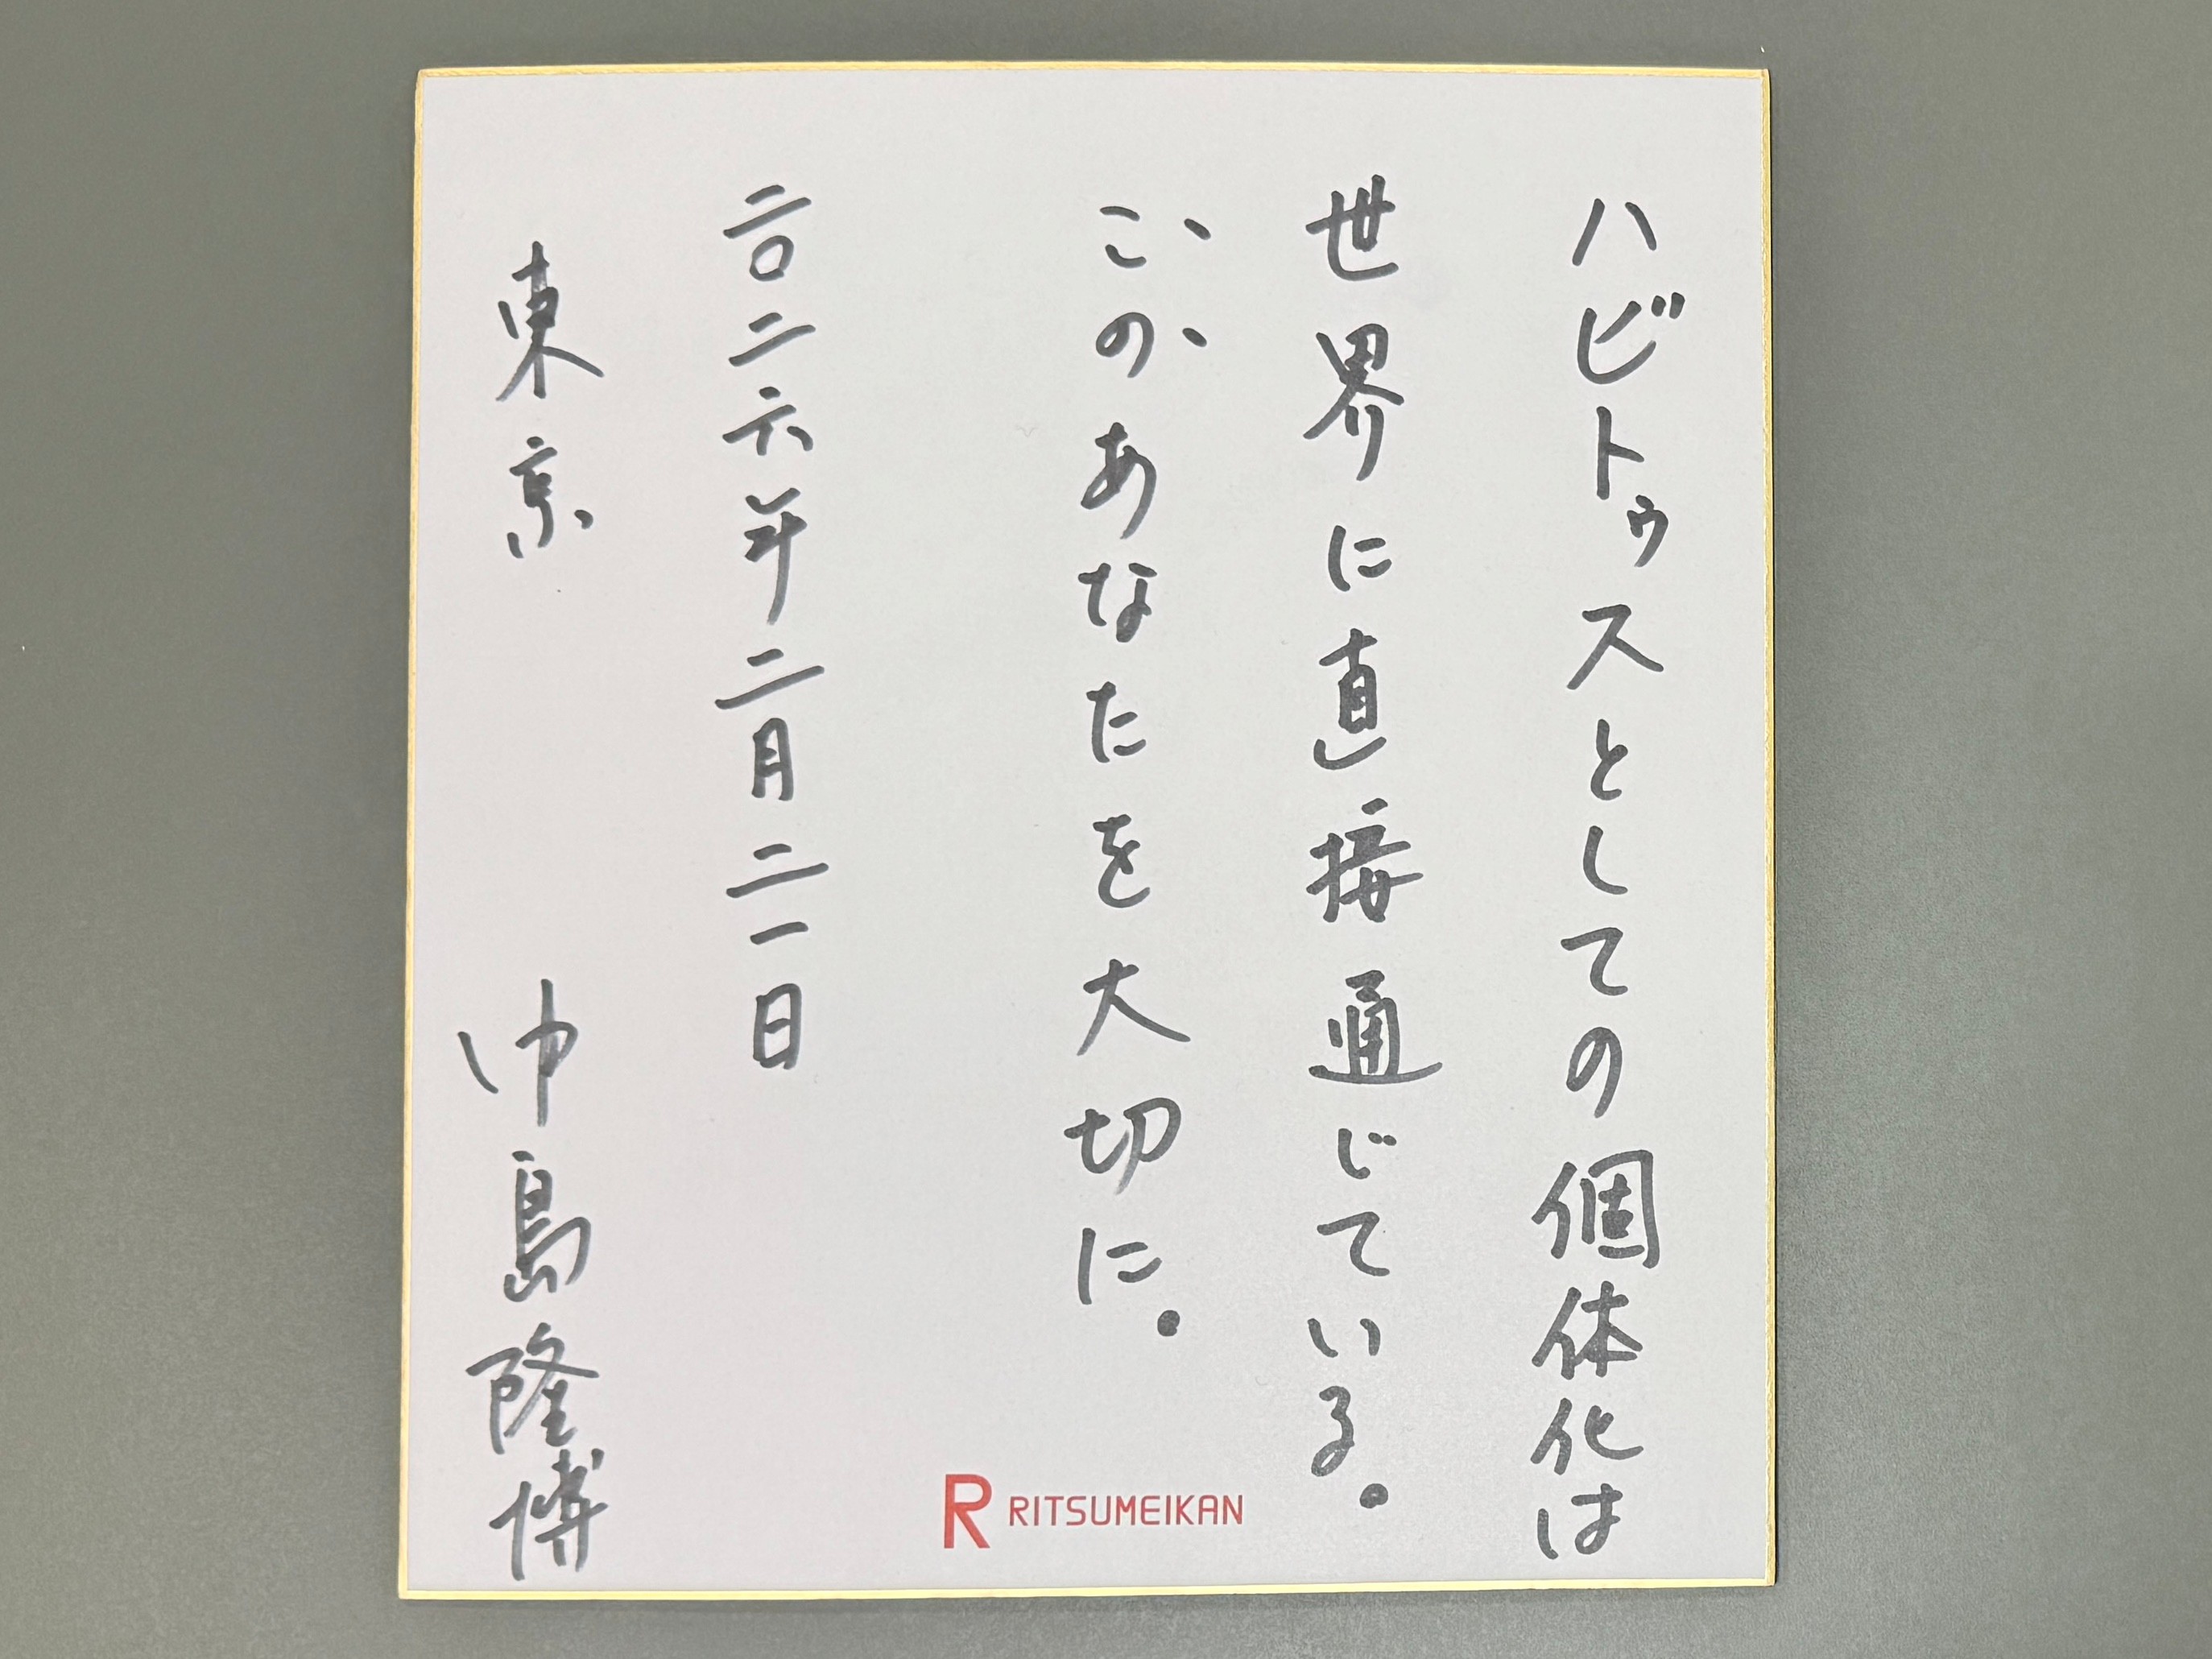 ハビトゥスとしての個体化は
世界に直接通じている。
このあなたを大切に。
二〇二六年二月二一日
東京 中島隆博
R RITSUMEIKAN